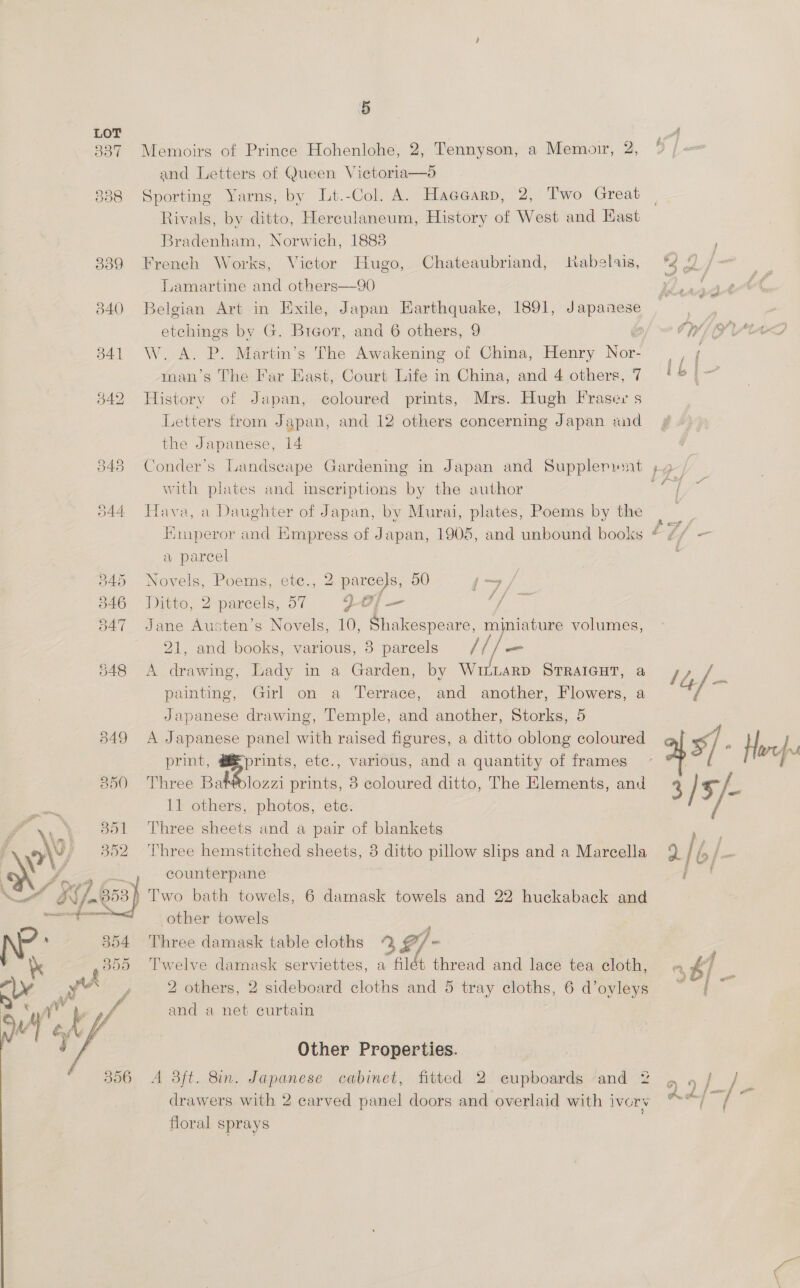 5
LOT
337 Memoirs of Prince Hohenlohe, 2, Tennyson, a Memoir, 2,
and Letters of Queen Victoria—5
338 Sporting Yarns, by Lt.-Col. A. HAGGARD, 2, Two Great
Rivals, by ditto, Herculaneum, History of West and East
Bradenham, Norwich, 1883
339 French Works, Victor Hugo, Chateaubriand, Rabelais,
Lamartine and others—90
340 Belgian Art in Exile, Japan Earthquake, 1891, Japanese
etchings by G. BIGOT, and 6 others, 9
341 W. A. P. Martin's The Awakening of China, Henry Nor-
man's The Far East, Court Life in China, and 4 others, 7 16/-
342 History of Japan, coloured prints, Mrs. Hugh Frasers
Letters from Japan, and 12 others concerning Japan and
the Japanese, 14
343 Conder's Landscape Gardening in Japan and Supplement
with plates and inscriptions by the author
344 Hava, a Daughter of Japan, by Murai, plates, Poems by the
Emperor and Empress of Japan, 1905, and unbound books
a parcel
345 Novels, Poems, etc., 2 parcels, 50
346 Ditto, 2 parcels, 57
347 Jane Austen's Novels, 10, Shakespeare, miniature volumes,
21, and books, various, 3 parcels 11/-
348 A drawing, Lady in a Garden, by WILLARD STRAIGHT, a
painting, Girl on a Terrace, and another, Flowers, a 14/-
Japanese drawing, Temple, and another, Storks, 5
349 A Japanese panel with raised figures, a ditto oblong coloured
print, prints, etc., various, and a quantity of frames
350 Three Bartolozzi prints, 3 coloured ditto, The Elements, and
11 others, photos, etc.
351 Three sheets and a pair of blankets
352 Three hemstitched sheets, 3 ditto pillow slips and a Marcella 2/6/-
counterpane
353 Two bath towels, 6 damask towels and 22 huckaback and
other towels
354 Three damask table cloths
355 Twelve damask serviettes, a filét thread and lace tea cloth,
2 others, 2 sideboard cloths and 5 tray cloths, 6 d'oyleys
and a net curtain
Other Properties.
356 A 3ft. 8in. Japanese cabinet, fitted 2 cupboards and 2
drawers with 2 carved panel doors and overlaid with ivory
floral sprays